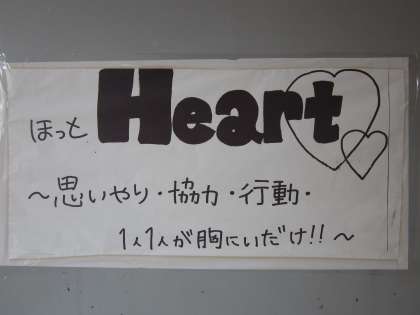 ほっと Heart
～思いやり・協力・行動・
1人1人が胸にいだけ!!～